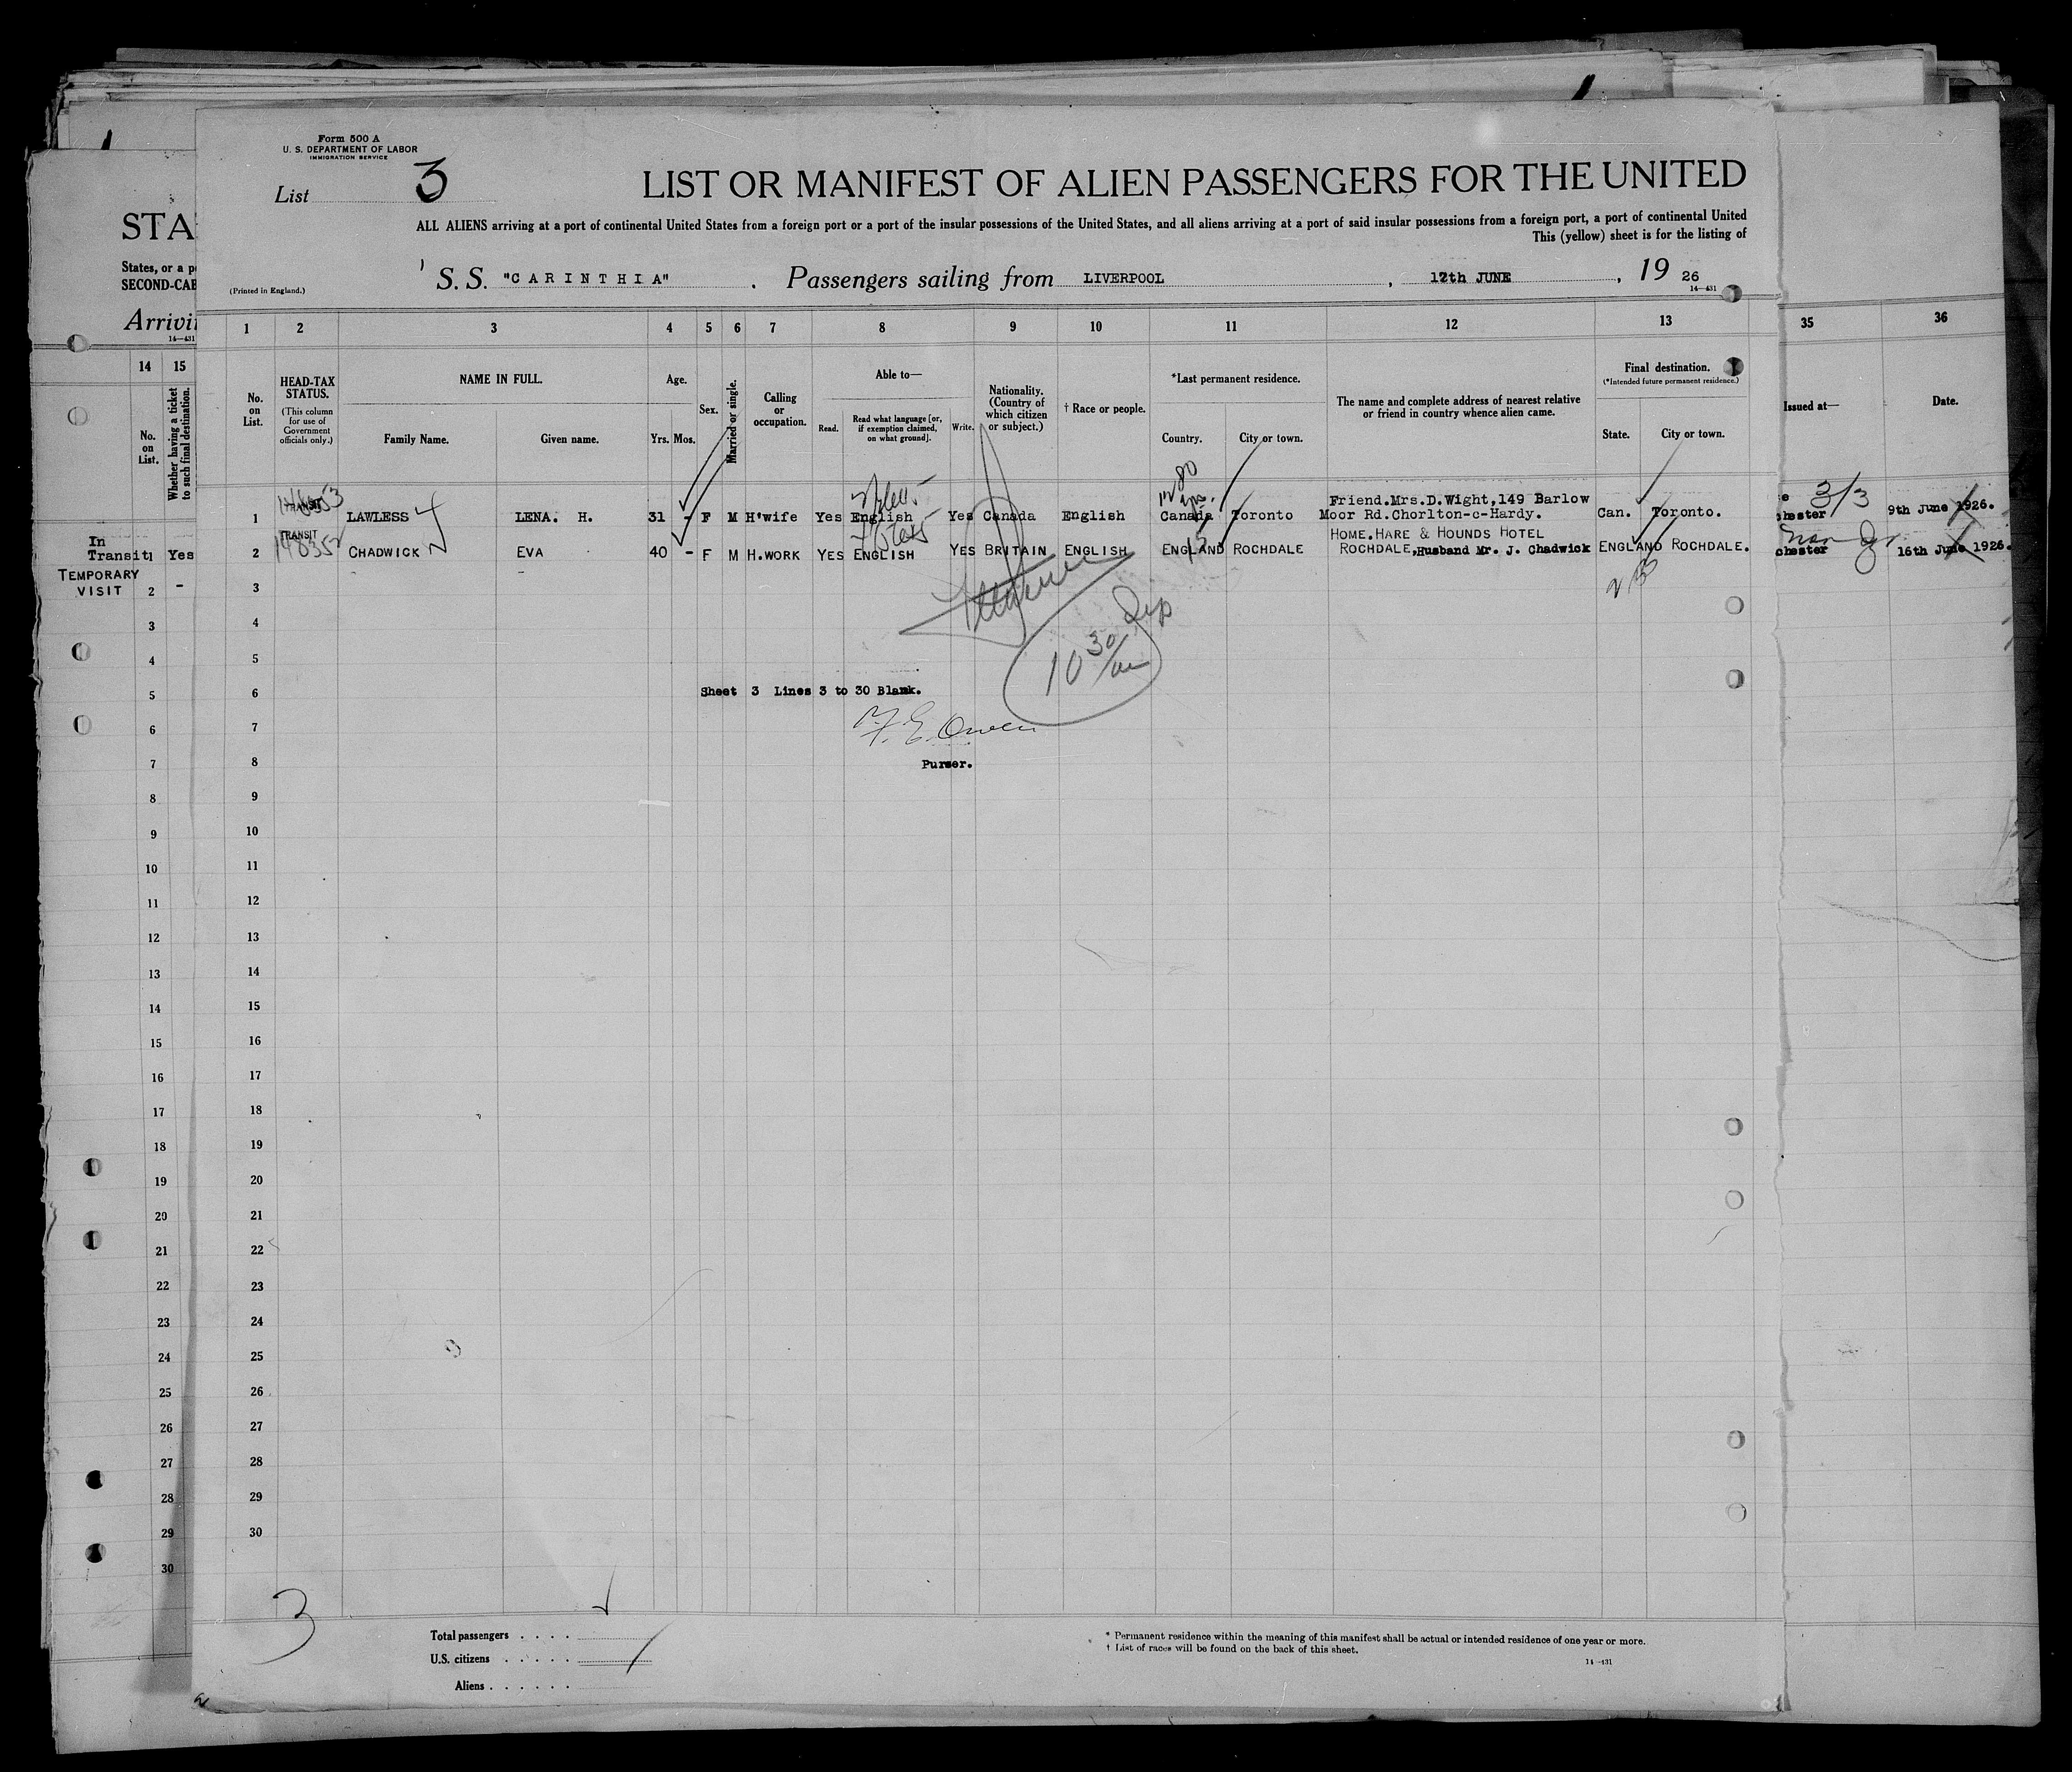 Form 500 A
U. S. DEPARTMENT OF LABOR
IMMIGRATION SERVICE
List 3
LIST OR MANIFEST OF ALIEN PASSENGERS FOR THE UNITED
ALL ALIENS arriving at a port of continental United States from a foreign port or a port of the insular possessions of the United States, and all aliens arriving at a port of said insular possessions from a foreign port, a port of continental United
This (yellow) sheet is for the listing of
STA
States, or a p
SECOND-CAB
Arrivi
14-431
(Printed in England.)
S. S. "CARINTHIA" , Passengers sailing from LIVERPOOL , 12th JUNE , 19 26
14-431
1 2 3 4 5 6 7 8 9 10 11 12 13
35 36
14 15
No. on List.
Whether having a ticket to such final destination.
No. on List.
HEAD-TAX STATUS.
(This column for use of Government officials only.)
NAME IN FULL.
Family Name. Given name.
Age.
Yrs. Mos.
Sex.
Married or single.
Calling or occupation.
Able to—
Read.
Read what language [or, if exemption claimed, on what ground].
Write.
Nationality. (Country of which citizen or subject.)
† Race or people.
*Last permanent residence.
Country. City or town.
The name and complete address of nearest relative or friend in country whence alien came.
Final destination.
(*Intended future permanent residence.)
State. City or town.
Issued at—
Date.
1 TRANSIT LAWLESS LENA. H. 31 - F M H'wife Yes English Yes Canada English Canada Toronto Friend.Mrs.D.Wight,149 Barlow
Moor Rd.Chorlton-c-Hardy. Can. Toronto.
chester 3/3 9th June 1926.
2 TRANSIT 148352 CHADWICK EVA 40 - F M H.WORK YES ENGLISH YES BRITAIN ENGLISH ENGLAND ROCHDALE HOME.HARE & HOUNDS HOTEL
ROCHDALE,Husband Mr. J. Chadwick ENGLAND ROCHDALE.
chester 16th June 1926.
In
Transit 1 Yes
TEMPORARY
VISIT 2 -
10 30/
Sheet 3 Lines 3 to 30 Blank.
F. E. Owen
Purser.
3
4
5
6
7
8
9
10
11
12
13
14
15
16
17
18
19
20
21
22
23
24
25
26
27
28
29
30
3
4
5
6
7
8
9
10
11
12
13
14
15
16
17
18
19
20
21
22
23
24
25
26
27
28
29
30
3
Total passengers . . . .
U.S. citizens . . . . .
Aliens . . . . . .
* Permanent residence within the meaning of this manifest shall be actual or intended residence of one year or more.
† List of races will be found on the back of this sheet.
14-431